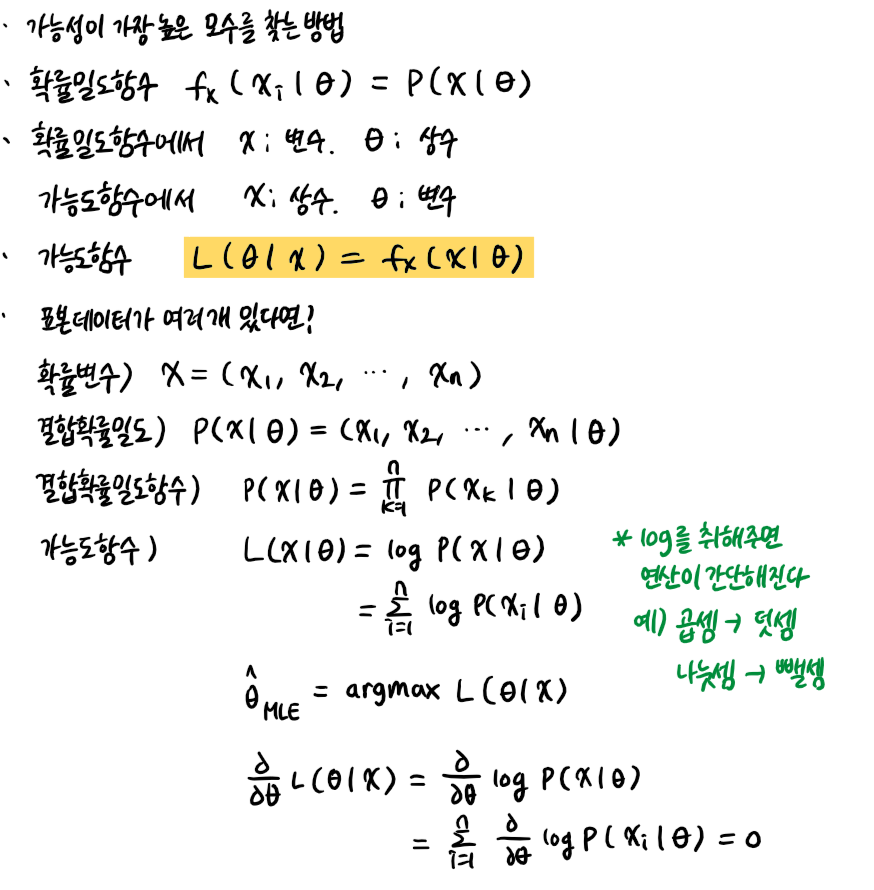 · 가능성이 가장 높은 모수를 찾는 방법
· 확률밀도함수 fx (xi | θ) = P(x | θ)
· 확률밀도함수에서 x ; 변수. θ ; 상수
가능도함수에서 x ; 상수. θ ; 변수
· 가능도함수 L(θ | x) = fx(x | θ)
· 표본데이터가 여러개 있다면?
확률변수) X = (x₁, x₂, ⋯, xn)
결합확률밀도) P(x | θ) = (x₁, x₂, ⋯, xn | θ)
결합확률밀도함수) P(x | θ) = ∏ⁿₖ₌₁ P(xk | θ)
가능도함수) L(x | θ) = log P(x | θ)
= Σⁿᵢ₌₁ log P(xi | θ)
* log를 취해주면
연산이 간단해진다
예) 곱셈 → 덧셈
나눗셈 → 뺄셈
θ̂ MLE = argmax L(θ | x)
∂/∂θ L(θ | x) = ∂/∂θ log P(x | θ)
= Σⁿᵢ₌₁ ∂/∂θ log P(xi | θ) = 0